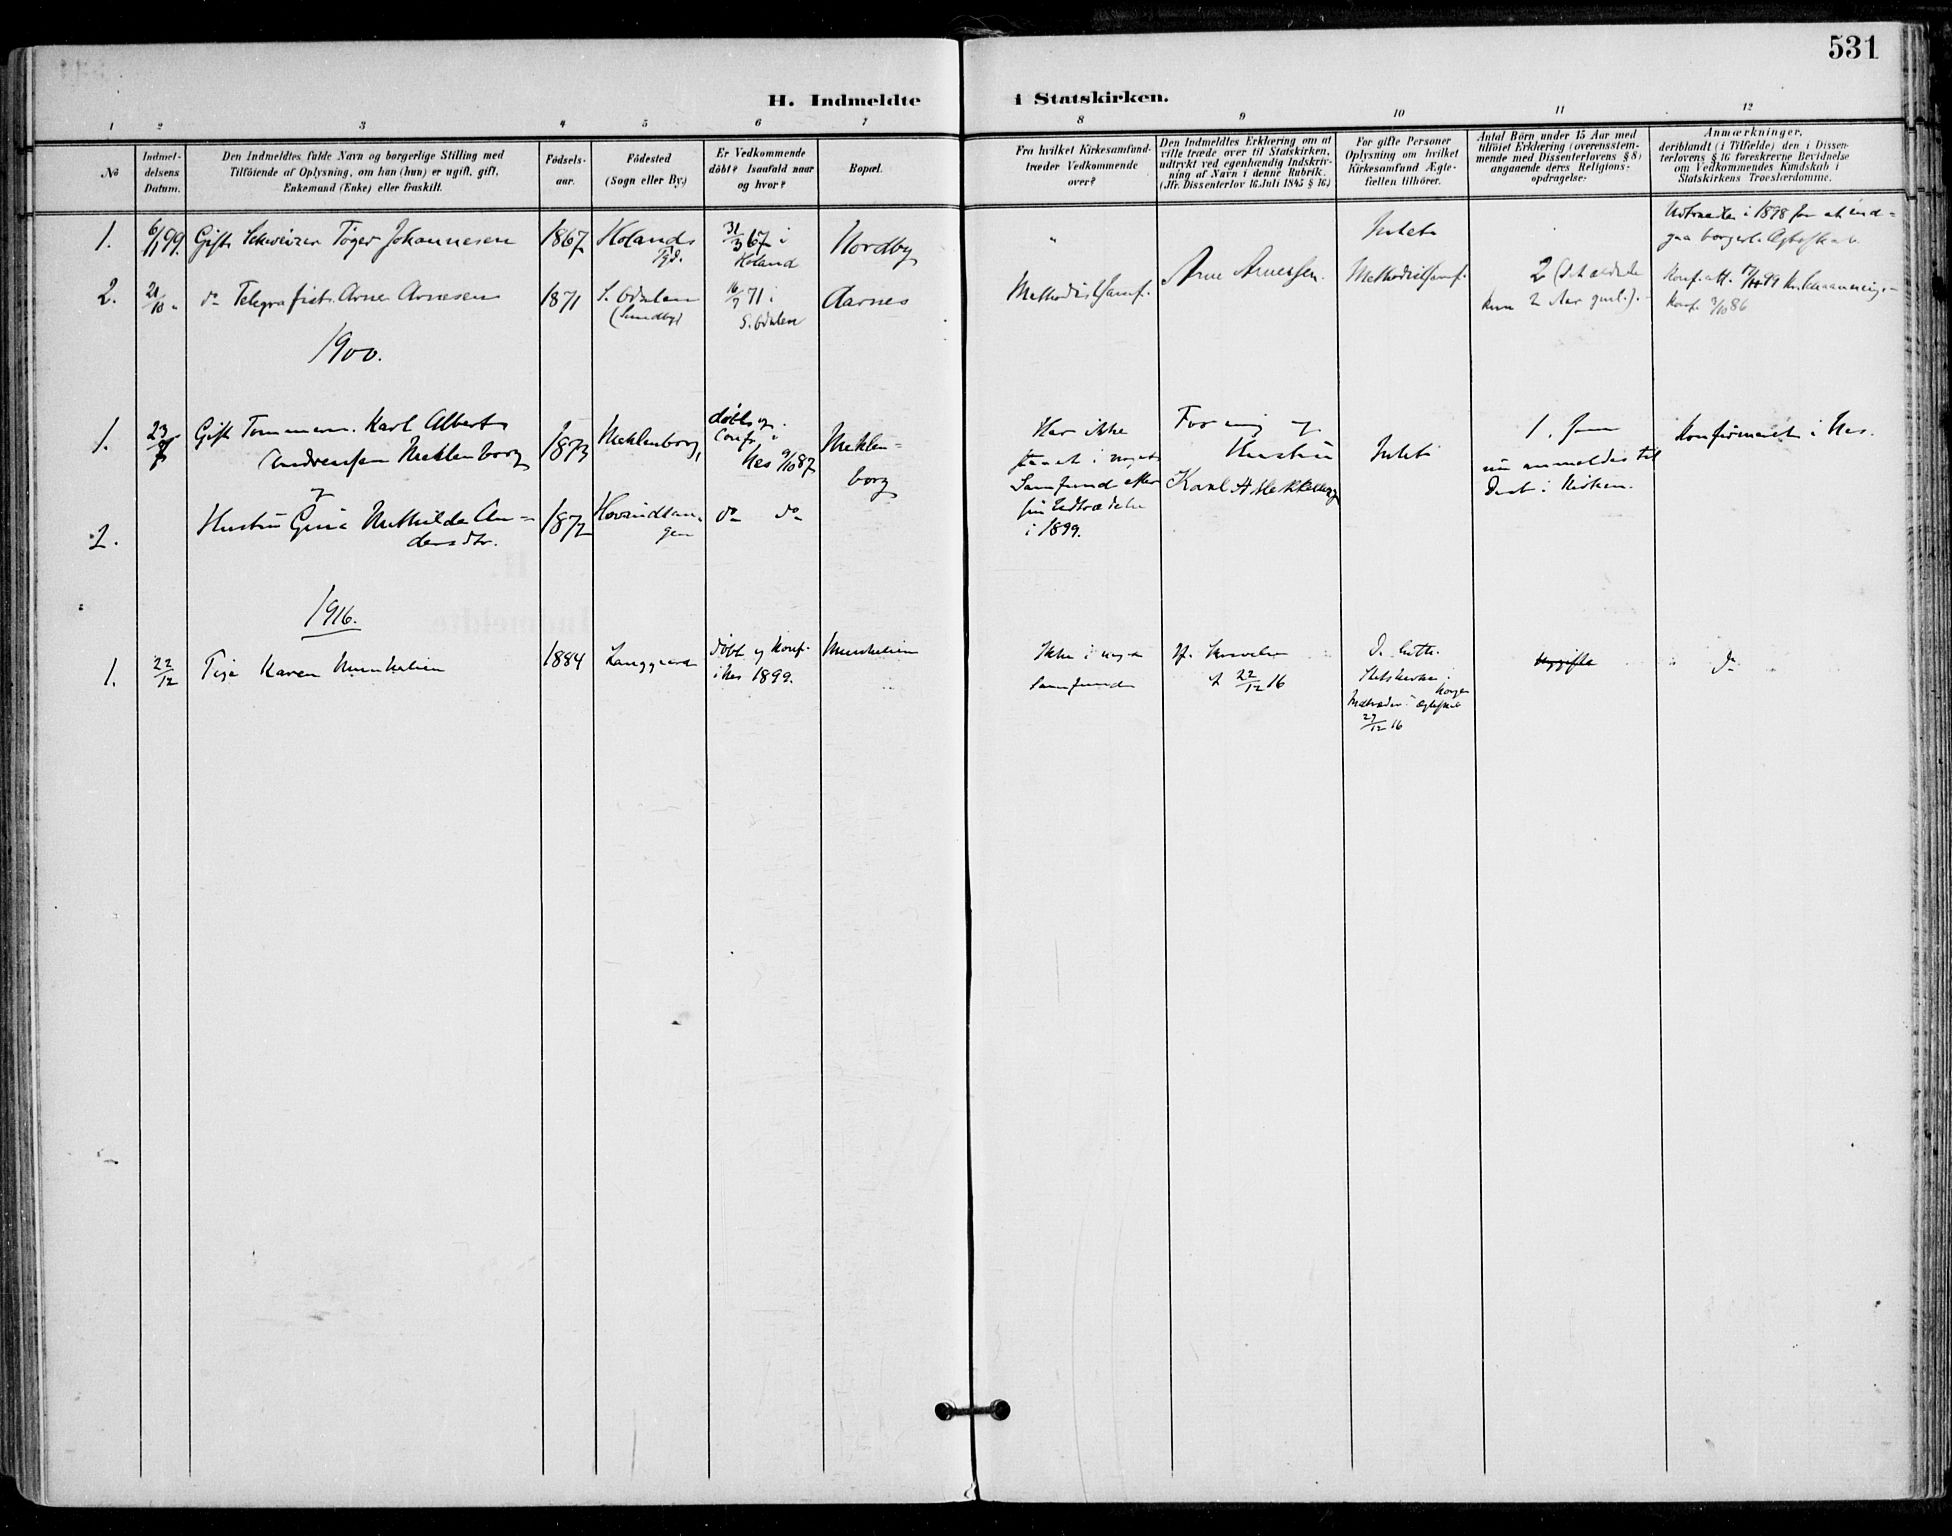 531
H. Indmeldte i Statskirken.
1 2 3 4 5 6 7 8 9 10 11 12
No
Indmel-
delsens
Datum.
Den Indmeldtes fulde Navn og borgerlige Stilling med
Tilföiende af Oplysning, om han (hun) er ugift, gift,
Enkemand (Enke) eller fraskilt.
Födsels-
aar.
Födested
(Sogn eller By.)
Er Vedkommende
döbt? Isaafald naar
og hvor?
Bopæl.
Fra hvilket Kirkesamfund
træder Vedkommende
over?
Den Indmeldtes Erklæring om at
ville træde over til Statskirken,
udtrykt ved egenhændig Indskriv-
ning af Navn i denne Rubrik.
(Jfr. Dissenterlov 16 Juli 1845 § 16.)
For gifte Personer
Oplysning om hvilket
Kirkesamfund Ægte-
fællen tilhörer.
Antal Börn under 15 Aar med
tilföiet Erklæring (overensstem-
mende med Dissenterlovens § 8)
angaaende deres Religions-
opdragelse.
Anmærkninger,
deriblandt (i Tilfælde) den i Dissen-
terlovens § 16 foreskrevne Bevidnelse
om Vedkommendes Kundskab i
Statskirkens Troeslærdomme.
1.
6/1 99.
Gift Schweizer Töger Johannesen
1867
Hölands
Pgd.
31/3 67 i
Höland
Nordby
"
Intet
Udtraadte i 1898 for at ind-
gaa borgerl. Ægteskab.
2.
21/10 "
do Telegrafist Arne Arnesen
1871
S. Odalen
(Sundby)
16/7 71 i
S. Odalen
Aarnes
Methodistsamf.
Arne Arnessen.
Methodistsamf.
2 (det ældste
kun 2 Aar gml.).
Konf. 3/10 86
1900.
1.
23
Gift Tømmerm. Karl Albert
Andreassen Meklenborg
1873
Meklenborg,
döbt og
Conf. i
Nes 9/10 87
Meklen-
borg
Har ikke
staaet i noget
Samfund efter
sin Udtrædelse
i 1899.
For mig og
Hustru
Karl A Meklenborg
Intet
1. som
nu anmeldes til
Daab i Kirken.
Konfirmeret i Nes.
og
2.
Hustru Gina Mathilde An-
dersdtr.
1872
Hovindtan-
gen
do do
1916.
1.
22/12
Karen Munkelien
1884
Langgaard
Döbt og konf.
i Nes 1899.
Munkelien
Ikke i noget
Samfund
22/12 16
D. luth.
Statskirke.
Ægteskab
27/12 16
do